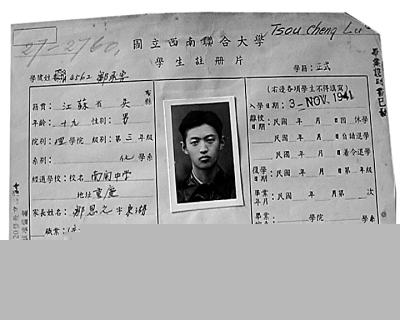 27-2760,
Tsou Cheng Lu
國立西南聯合大學
學生註冊片
學籍：正式
學號
4562 鄒承魯
籍貫：江蘇省 吳 縣
年齡：十九 性別：男
院別：理學院 級別：第三年級
系別： 化 學系
經過學校：校名 南開中學
地址 重慶
家長姓名：鄒恩
職業：
(右邊各項學生不得填寫)
入學日期：3 - NOV. 1941
離校日期：民國 年 月 日因 休學
民國 年 月 日自請退學
民國 年 月 日著令退學
復學日期：民國 年 月 日第 年級
畢業年月：民國 年 月第 次
學院 學系